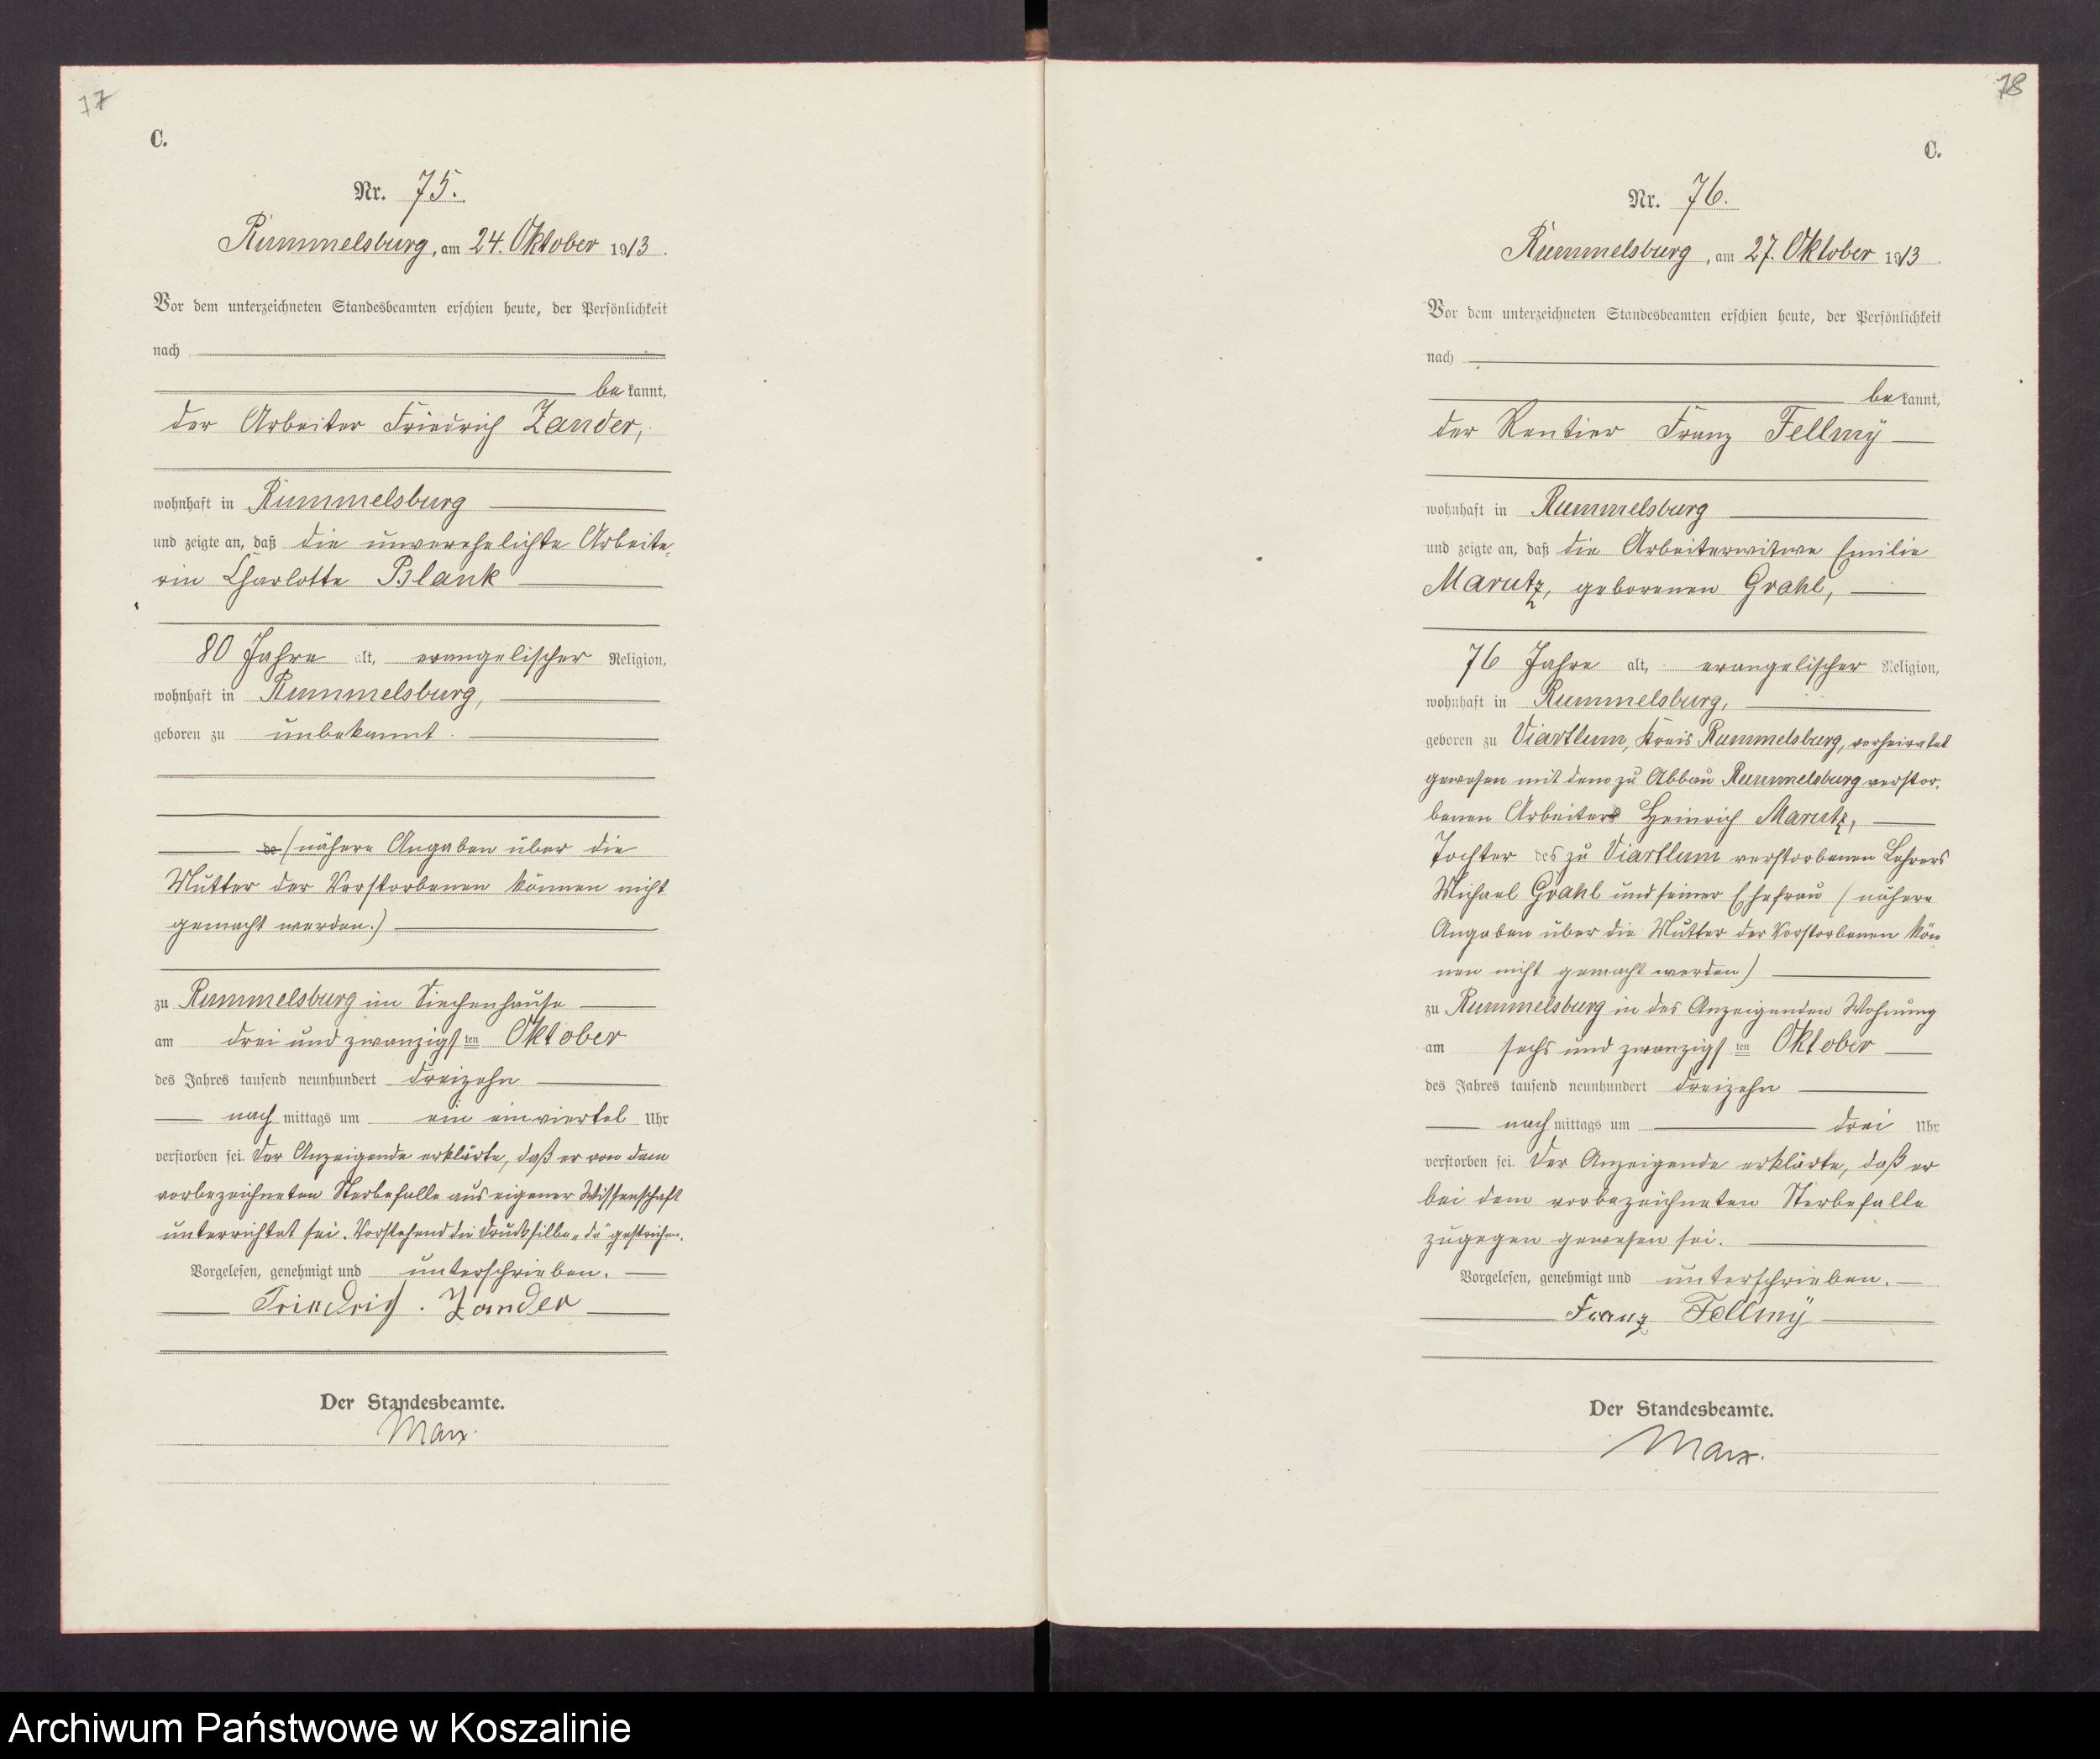 77
C.
Nr. 75.
Rummelsburg, am 24. Oktober 1913.
Vor dem unterzeichneten Standesbeamten erschien heute, der Persönlichkeit
nach
be kannt,
der Arbeiter Friedrich Zander,
wohnhaft in Rummelsburg
und zeigte an, daß die unverehelichte Arbeite-
rin Charlotte Blank
80 Jahre alt, evangelischer Religion,
wohnhaft in Rummelsburg,
geboren zu unbekannt.
de (nähere Angaben über die
Mutter der Verstorbenen können nicht
gemacht werden.)
zu Rummelsburg im Siechenhause
am drei und zwanzigsten Oktober
des Jahres tausend neunhundert dreizehn
nach mittags um ein einviertel Uhr
verstorben sei. Der Anzeigende erklärte, daß er von dem
vorbezeichneten Sterbefalle aus eigener Wissenschaft
unterrichtet sei. Vorstehend die Drucksilbe „de" gestrichen.
Vorgelesen, genehmigt und unterschrieben.
Friedrich. Zander
Der Standesbeamte.
Marx.
78
C.
Nr. 76.
Rummelsburg, am 27. Oktober 1913.
Vor dem unterzeichneten Standesbeamten erschien heute, der Persönlichkeit
nach
be kannt,
der Rentier Franz Fellmÿ
wohnhaft in Rummelsburg
und zeigte an, daß die Arbeiterwitwe Emilie
Marutz, geborenen Grahl,
76 Jahre alt, evangelischer Religion,
wohnhaft in Rummelsburg,
geboren zu Viartlum, Kreis Rummelsburg, verheiratet
gewesen mit dem zu Abbau Rummelsburg verstor-
benen Arbeiter Heinrich Marutz,
Tochter des zu Viartlum verstorbenen Lehrers
Michael Grahl und seiner Ehefrau (nähere
Angaben über die Mutter der Verstorbenen kön-
nen nicht gemacht werden)
zu Rummelsburg in des Anzeigenden Wohnung
am sechs und zwanzigsten Oktober
des Jahres tausend neunhundert dreizehn
nach mittags um drei Uhr
verstorben sei. Der Anzeigende erklärte, daß er
bei dem vorbezeichneten Sterbefalle
zugegen gewesen sei.
Vorgelesen, genehmigt und unterschrieben.
Franz Fellmÿ
Der Standesbeamte.
Marx.
Archiwum Państwowe w Koszalinie